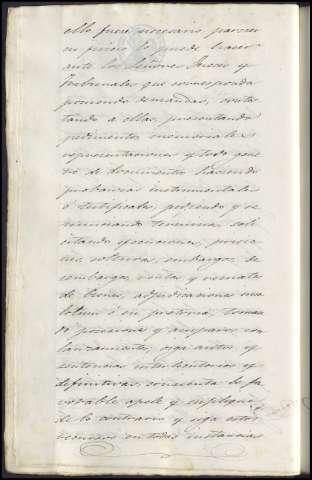 ello fuere necesario parecer
en juicio lo puede hacer
ante los Señores Jueces y
Tribunales que corresponda
poniendo demandas, contes
tando a ellas, presentando
pedimentos memoriales
representaciones y todo gene
ro de documentos haciendo
probanzas instrumentales
ó testificales, pidiendo y re
nunciando terminos, soli
citando ejecuciones, prisio
nes solturas, embargos, de
sembargos, ventas y remate
de bienes, adjudicaciones in so
lutum ó en proteria, toman
do posesiones y amparos con
lanzamientos, oiga autos y
sentencias interlocutorias y
definitivas, consienta lo fa
vorable apele y suplique
de lo contrario y siga estos
recursos en todas instancias